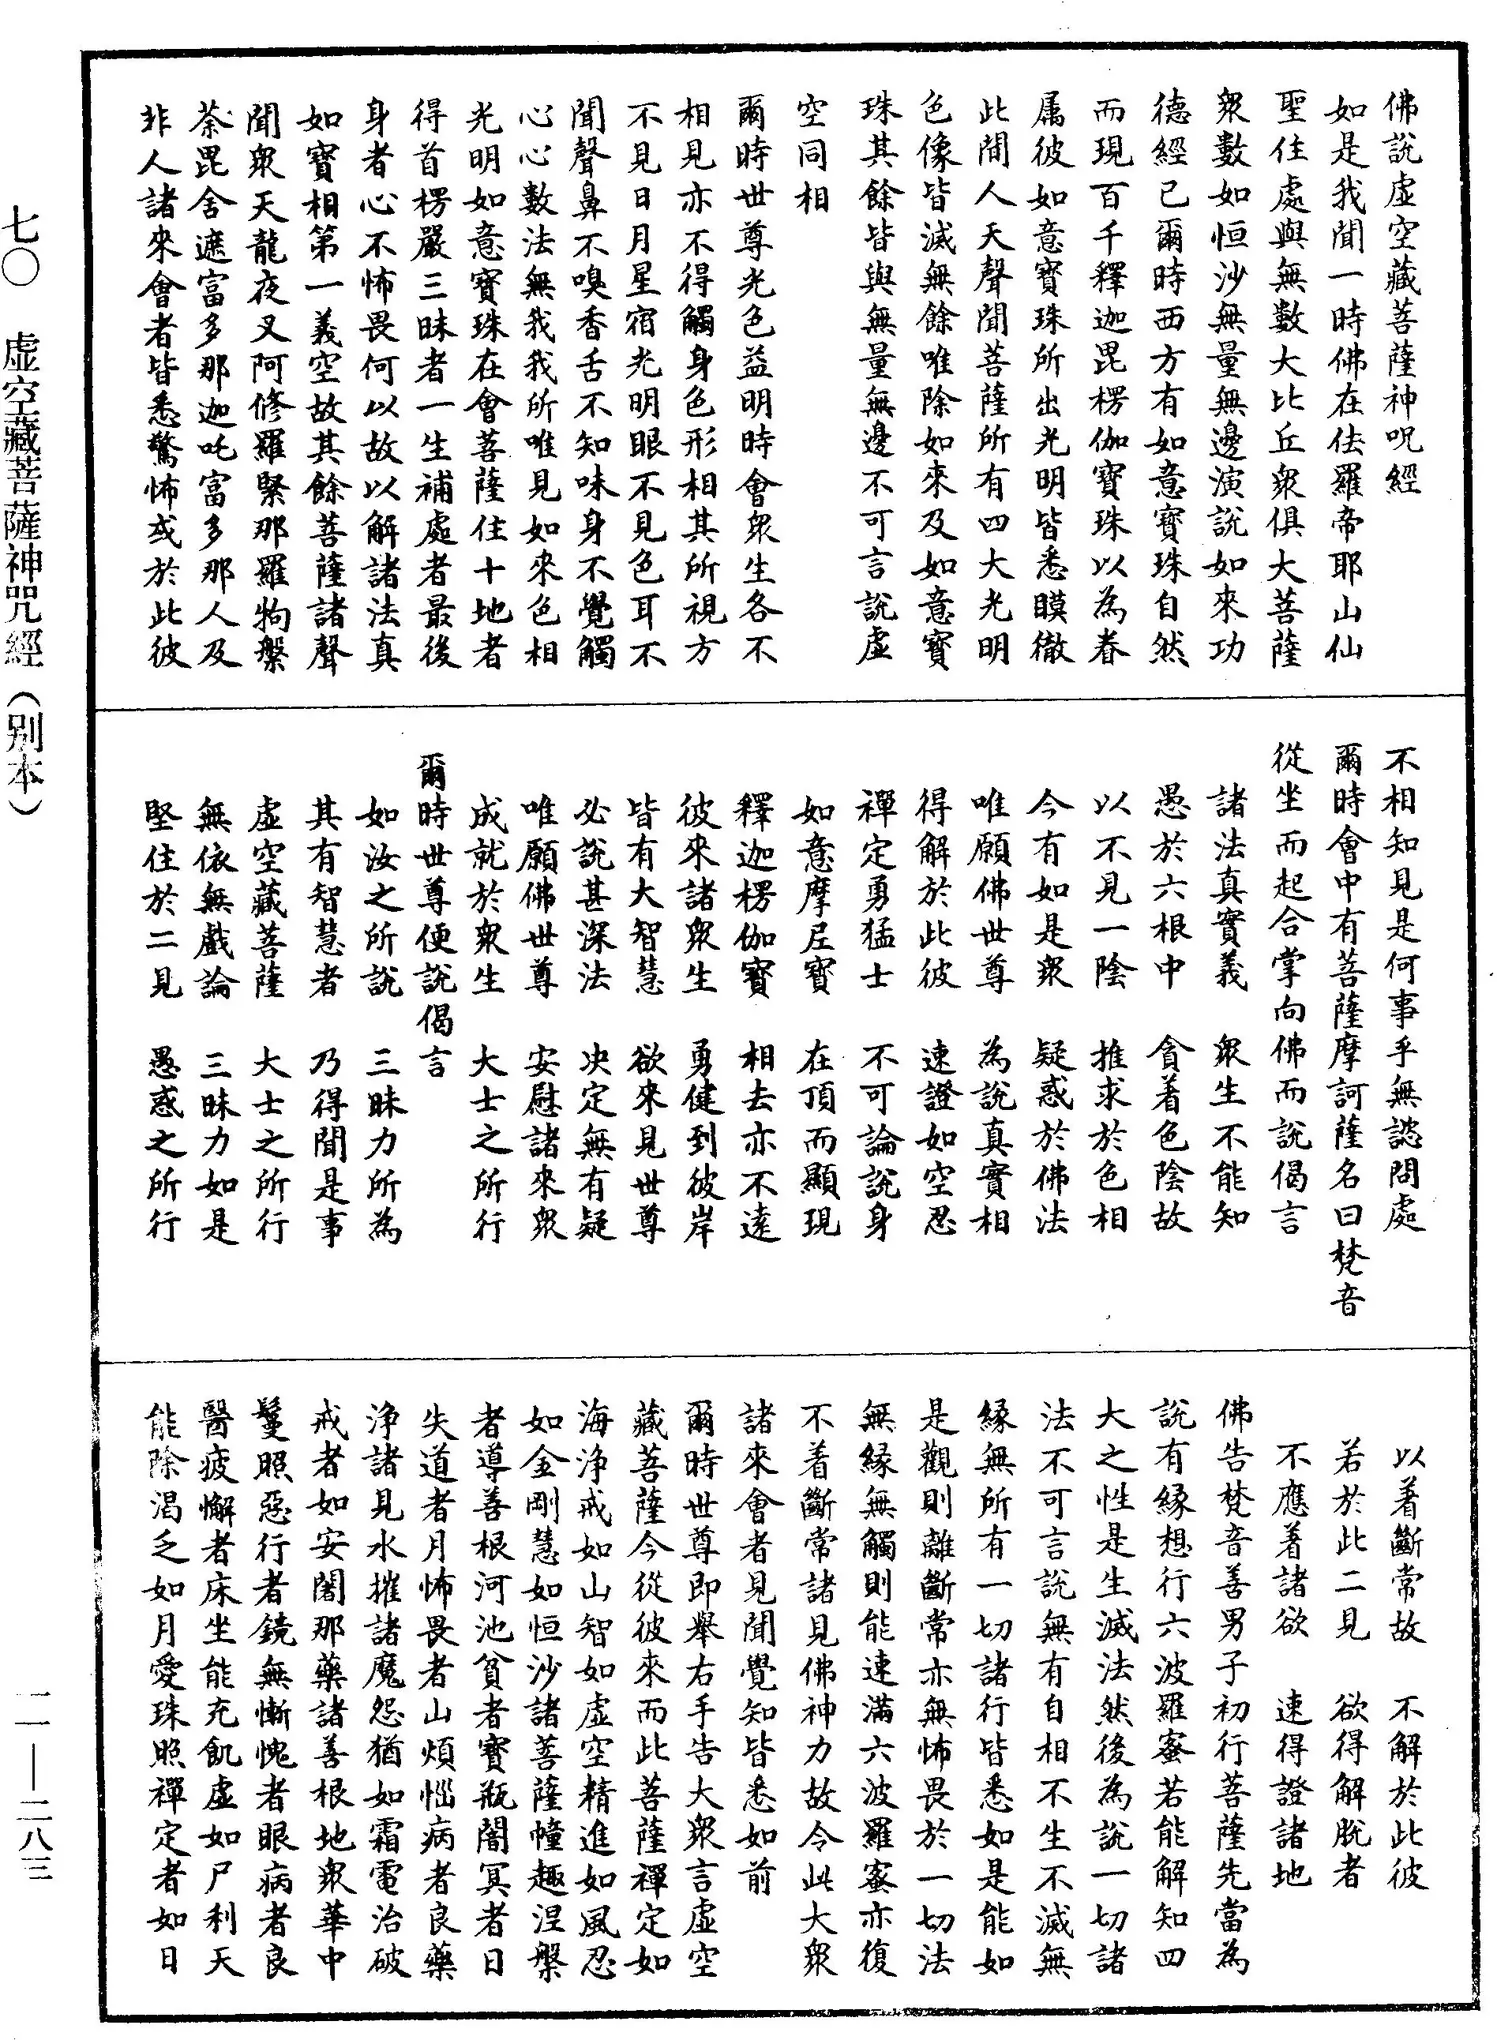 佛說虛空藏菩薩神呪經
如是我聞一時佛在佉羅帝耶山仙
聖住處與無數大比丘衆俱大菩薩
衆數如恒沙無量無邊演說如來功
德經已爾時西方有如意寶珠自然
而現百千釋迦毘楞伽寶珠以為眷
属彼如意寶珠所出光明皆悉瞙徹
此閒人天聲聞菩薩所有四大光明
色像皆滅無餘唯除如來及如意寶
珠其餘皆與無量無邊不可言說虛
空同相
爾時世尊光色益明時會衆生各不
相見亦不得觸身色形相其所視方
不見日月星宿光明眼不見色耳不
聞聲鼻不嗅香舌不知味身不覺觸
心心數法無我我所唯見如來色相
光明如意寶珠在會菩薩住十地者
得首楞嚴三昧者一生補處者最後
身者心不怖畏何以故以解諸法真
如寶相第一義空故其餘菩薩諸聲
聞衆天龍夜叉阿修羅緊那羅拘槃
荼毘舍遮富多那迦吒富多那人及
非人諸來會者皆悉驚怖或於此彼
不相知見是何事乎無諮問處
爾時會中有菩薩摩訶薩名曰梵音
從坐而起合掌向佛而說偈言
諸法真實義 衆生不能知
愚於六根中 貪着色陰故
以不見一陰 推求於色相
今有如是衆 疑惑於佛法
唯願佛世尊 為說真實相
得解於此彼 速證如空忍
禪定勇猛士 不可論說身
如意摩尼寶 在頂而顯現
釋迦楞伽寶 相去亦不遠
彼來諸衆生 勇健到彼岸
皆有大智慧 欲來見世尊
必說甚深法 决定無有疑
唯願佛世尊 安慰諸來衆
成就於衆生 大士之所行
爾時世尊便說偈言
如汝之所說 三昧力所為
其有智慧者 乃得聞是事
虛空藏菩薩 大士之所行
無依無戲論 三昧力如是
堅住於二見 愚惑之所行
以着斷常故 不解於此彼
若於此二見 欲得解脫者
不應着諸欲 速得證諸地
佛告梵音善男子初行菩薩先當為
說有縁想行六波羅蜜若能解知四
大之性是生滅法然後為說一切諸
法不可言說無有自相不生不滅無
縁無所有一切諸行皆悉如是能如
是觀則離斷常亦無怖畏於一切法
無縁無觸則能速滿六波羅蜜亦復
不着斷常諸見佛神力故令此大衆
諸來會者見聞覺知皆悉如前
爾時世尊即舉右手告大衆言虛空
藏菩薩今從彼來而此菩薩禪定如
海淨戒如山智如虛空精進如風忍
如金剛慧如恒沙諸菩薩幢趣涅槃
者導善根河池貧者寶瓶闇冥者日
失道者月怖畏者山煩惱病者良藥
淨諸見水摧諸魔怨猶如霜電治破
戒者如安闍那藥諸善根地衆華中
鬘照惡行者鏡無慚愧者眼病者良
醫疲懈者床坐能充飢虛如尸利天
能除渴乏如月愛珠照禪定者如日
七〇 虛空藏菩薩神咒經（别本）
一一—二八三